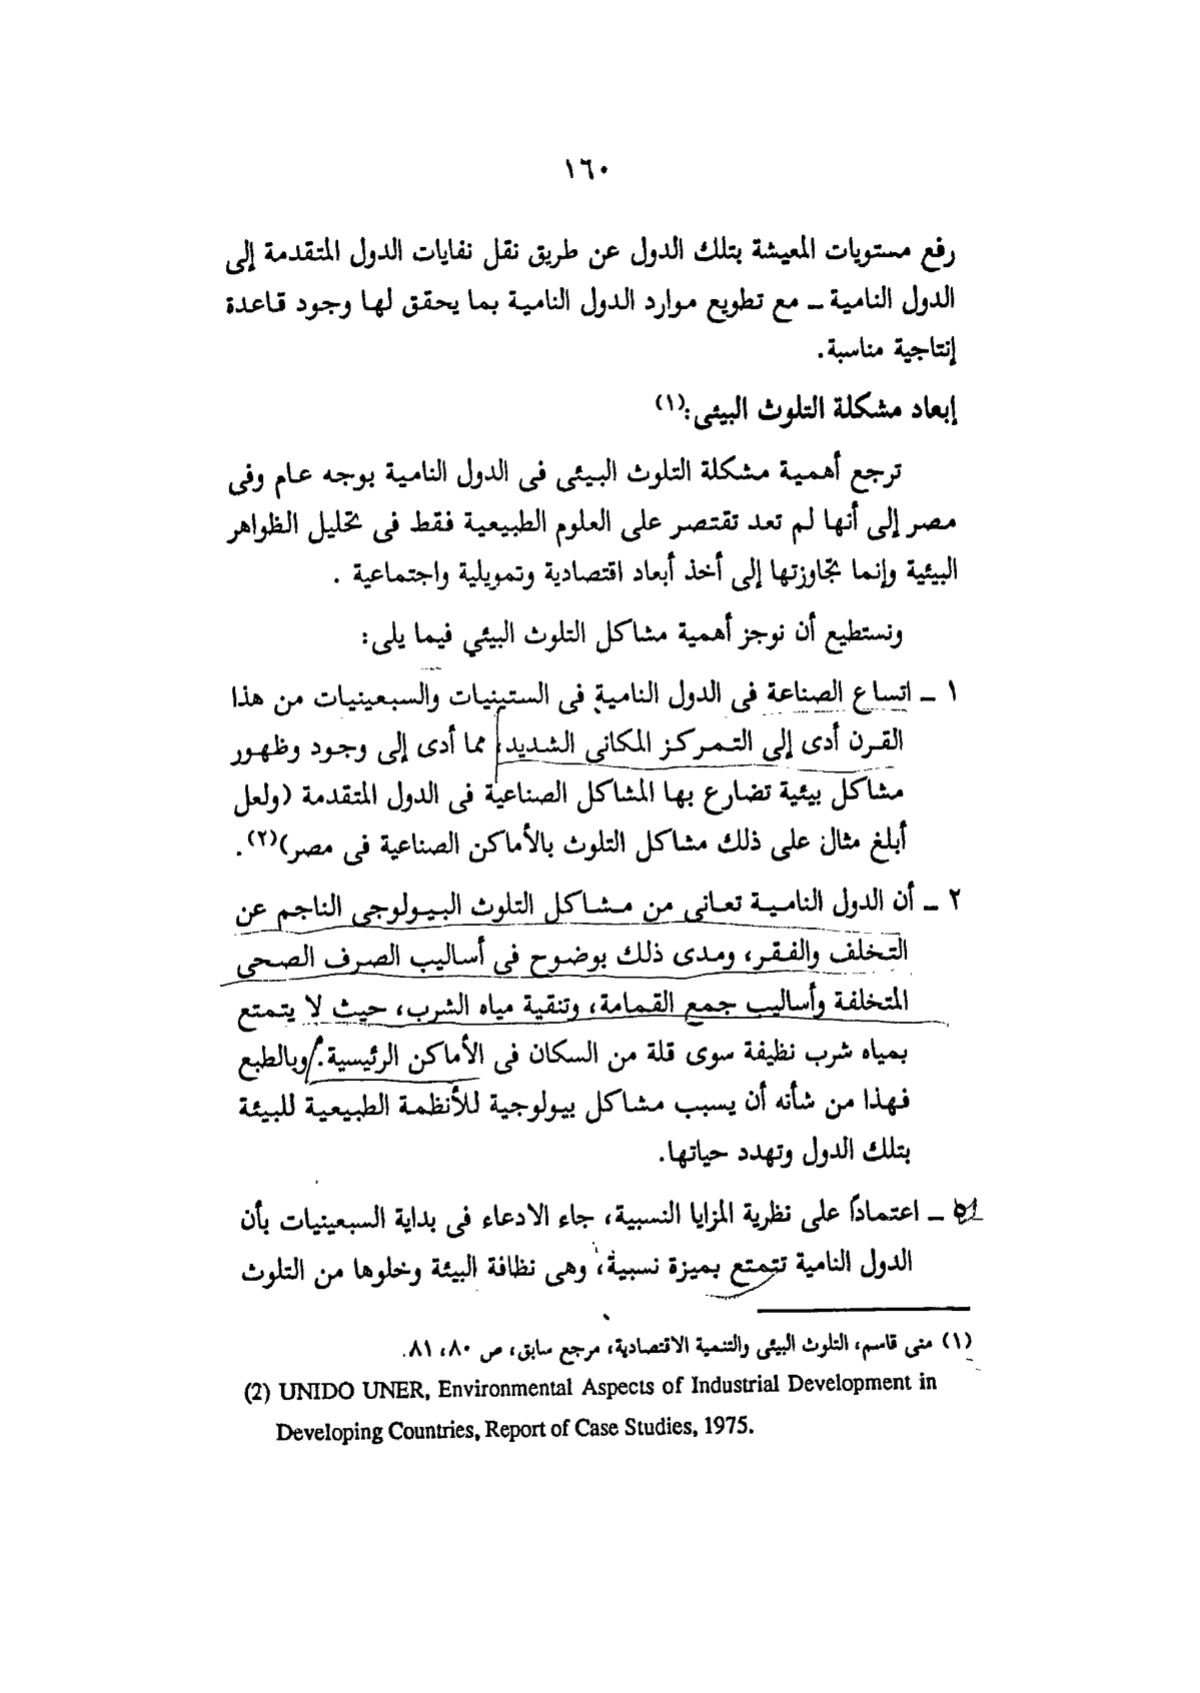 ١٦٠
رفع مستويات المعيشة بتلك الدول عن طريق نقل نفايات الدول المتقدمة إلى
الدول النامية ــ مع تطويع موارد الدول النامية بما يحقق لها وجود قاعدة
إنتاجية مناسبة.
إبعاد مشكلة التلوث البيئى:(١)
ترجع أهمية مشكلة التلوث البيئى فى الدول النامية بوجه عام وفى
مصر إلى أنها لم تعد تقتصر على العلوم الطبيعية فقط فى تحليل الظواهر
البيئية وإنما تجاوزتها إلى أخذ أبعاد اقتصادية وتمويلية واجتماعية .
ونستطيع أن نوجز أهمية مشاكل التلوث البيئي فيما يلى:
١ ــ اتساع الصناعة فى الدول النامية فى الستينيات والسبعينيات من هذا
القرن أدى إلى التمركز المكانى الشديد، مما أدى إلى وجود وظهور
مشاكل بيئية تضارع بها المشاكل الصناعية فى الدول المتقدمة (ولعل
أبلغ مثال على ذلك مشاكل التلوث بالأماكن الصناعية فى مصر)(٢).
٢ ــ أن الدول النامية تعانى من مشاكل التلوث البيولوجى الناجم عن
التخلف والفقر، ومدى ذلك بوضوح فى أساليب الصرف الصحى
المتخلفة وأساليب جمع القمامة، وتنقية مياه الشرب، حيث لا يتمتع
بمياه شرب نظيفة سوى قلة من السكان فى الأماكن الرئيسية. وبالطبع
فهذا من شأنه أن يسبب مشاكل بيولوجية للأنظمة الطبيعية للبيئة
بتلك الدول وتهدد حياتها.
ــ اعتماداً على نظرية المزايا النسبية، جاء الادعاء فى بداية السبعينيات بأن
الدول النامية تتمتع بميزة نسبية، وهى نظافة البيئة وخلوها من التلوث
(١) منى قاسم، التلوث البيئى والتنمية الاقتصادية، مرجع سابق، ص ٨٠، ٨١.
(2) UNIDO UNER, Environmental Aspects of Industrial Development in
Developing Countries, Report of Case Studies, 1975.